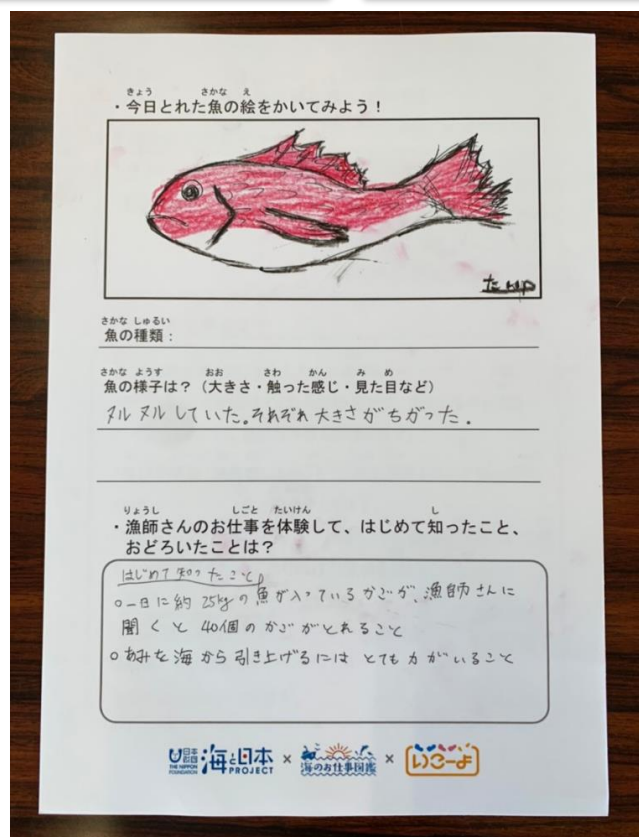 きょう さかな え
・今日とれた魚の絵をかいてみよう！
さかな しゅるい
魚の種類：
さかな ようす おお さわ かん み め
魚の様子は？（大きさ・触った感じ・見た目など）
ヌルヌルしていた。それぞれ大きさがちがった。
りょうし しごと たいけん し
・漁師さんのお仕事を体験して、はじめて知ったこと、
おどろいたことは？
はじめて知ったこと。
○一日に約25kgの魚が入っているかごが、漁師さんに
聞くと40個のかごがとれること
○あみを海から引き上げるにはとても力がいること
日本財団 THE NIPPON FOUNDATION 海と日本 PROJECT × 海のお仕事図鑑 × いこーよ